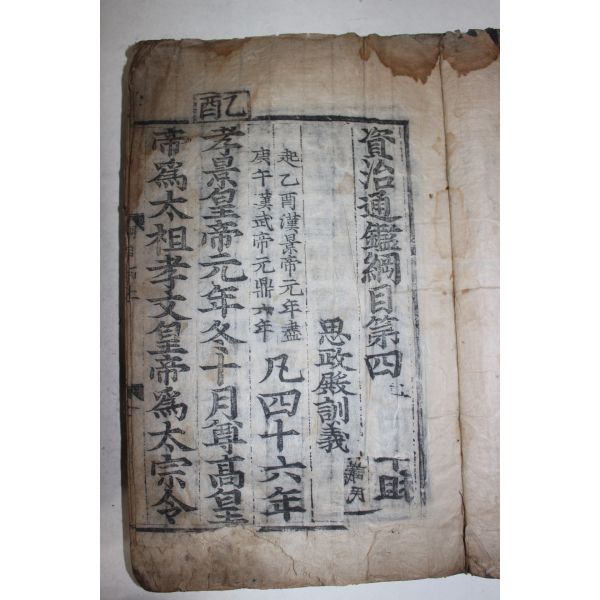 資治通鑑綱目第四上
思政殿訓義
起乙酉漢景帝元年盡
庚午漢武帝元鼎六年
凡四十六年
乙酉
孝景皇帝元年冬十月尊高皇
帝爲太祖孝文皇帝爲太宗令